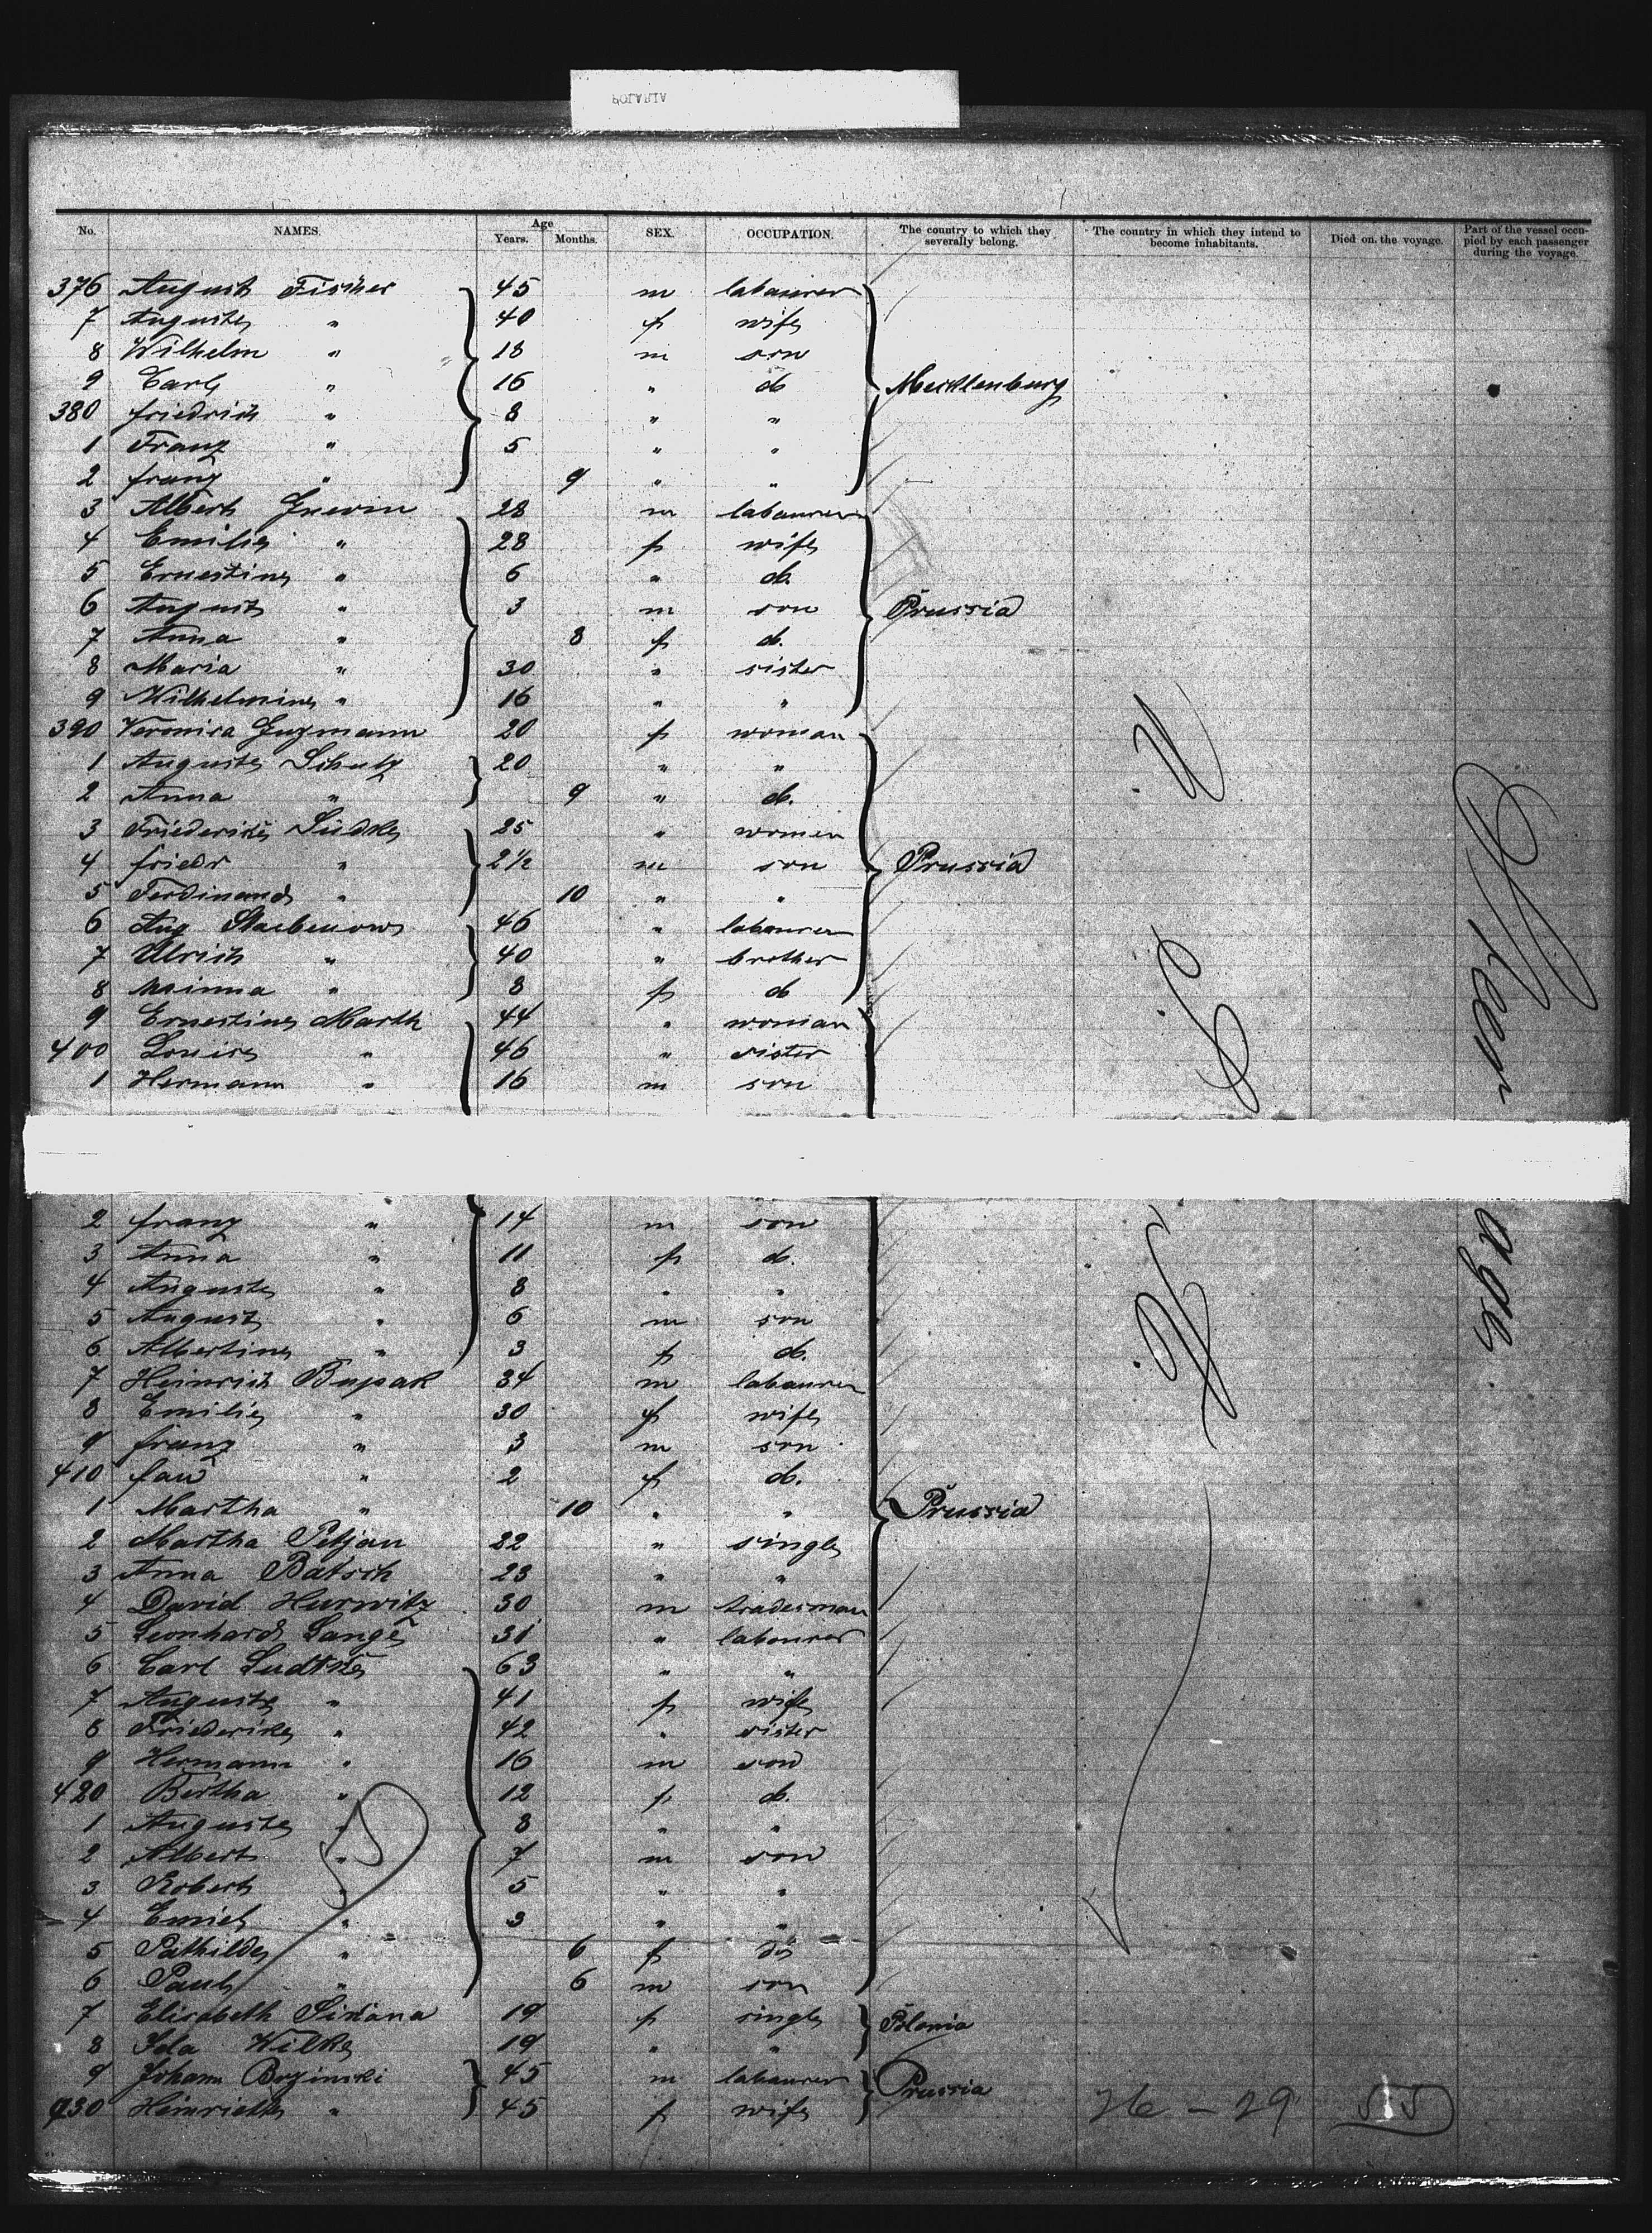 POLARIA
No. NAMES. Age Years. Months. SEX. OCCUPATION. The country to which they severally belong. The country in which they intend to become inhabitants. Died on the voyage. Part of the vessel occupied by each passenger during the voyage.
376 August Fischer 45 m labourer
7 Auguste " 40 f wife
8 Wilhelm " 18 m son
9 Carl " 16 " do Mecklenburg
380 Friedrich " 8 " "
1 Franz " 5 " "
2 Franz " 9 " "
3 Albert 28 m labourer
4 Emilie " 28 f wife
5 Ernestine " 6 " d.
6 August " 3 m son Prussia
7 Anna " 8 f d.
8 Maria " 30 " sister
9 Wilhelmine " 16 " "
390 Veronica 20 f woman
1 Auguste Schulz 20 " "
2 Anna " 9 " d.
3 Friederike Lüdke 25 " woman
4 Friedr " 2 1/2 m son Prussia
5 Ferdinand " 10 " "
6 Aug. Staebenow 46 " labourer
7 Ulrich " 40 " brother
8 Minna " 8 f d
9 Ernestine Marth 44 " woman
400 Louise " 46 " sister
1 Hermann " 16 m son
2 Franz " 14 m son
3 Anna " 11 f d.
4 Auguste " 8 " "
5 August " 6 m son
6 Albertine " 3 f d.
7 Heinrich 34 m labourer
8 Emilie " 30 f wife
9 Franz " 3 m son
410 " 2 f d.
1 Martha " 10 " " Prussia
2 Martha Petjan 22 " single
3 Anna Batsch 23 " "
4 David Hurwitz 30 m tradesman
5 Leonhard Lange 31 " labourer
6 Carl Ludtke 63 " "
7 Auguste " 41 f wife
8 Friederike " 42 " sister
9 Hermann " 16 m son
420 Bertha " 12 f d.
1 Auguste " 8 " "
2 Albert " 7 m son
3 Robert " 5 " "
4 Emil " 3 " "
5 Pathilde " 6 f do
6 Paul " 6 m son
7 Elisabeth 19 f single Polonia
8 Ida Wilke 19 " "
9 Johann Bozinski 45 m labourer Prussia
430 Henriette " 45 f wife
26 – 29